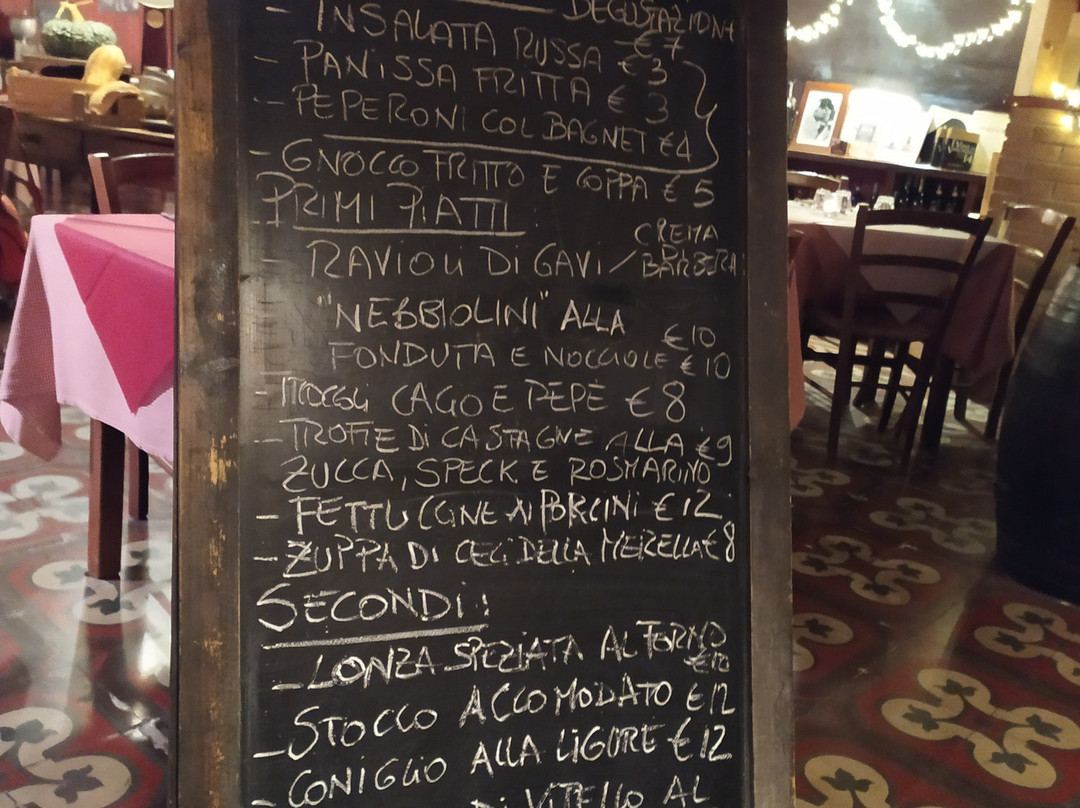 DEGUSTAZIONE
- INSALATA RUSSA € 7
- PANISSA FRITTA € 3
- PEPERONI COL BAGNET € 3
€4
- GNOCCO FRITTO E COPPA € 5
PRIMI PIATTI:
- RAVIOLI DI GAVI / CREMA BARBERA
"NEBBIOLINI" ALLA €10
FONDUTA E NOCCIOLE €10
- TROCOLI CACIO E PEPE € 8
- TROFIE DI CASTAGNE ALLA €9
ZUCCA, SPECK E ROSMARINO
- FETTUCCINE AI PORCINI € 12
- ZUPPA DI CECI DELLA MERELLA € 8
SECONDI:
- LONZA SPEZIATA AL FORNO
€10
- STOCCO ACCOMODATO €12
- CONIGLIO ALLA LIGURE € 12
DI VITELLO AL